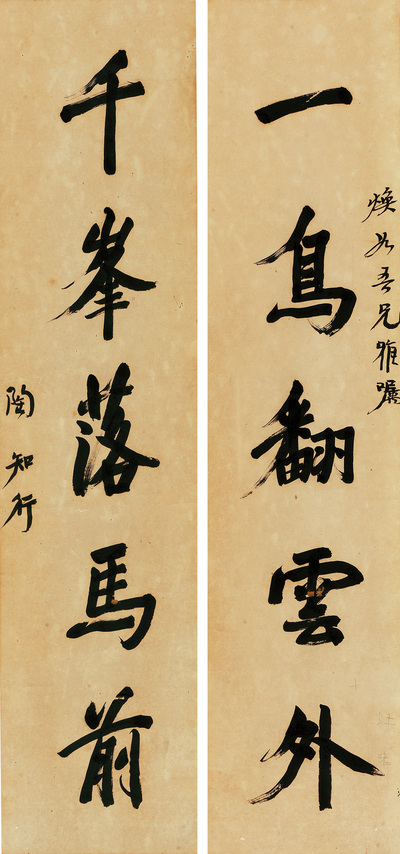 煥如吾兄雅囑
一鳥翻雲外
千峯落馬前
陶知行